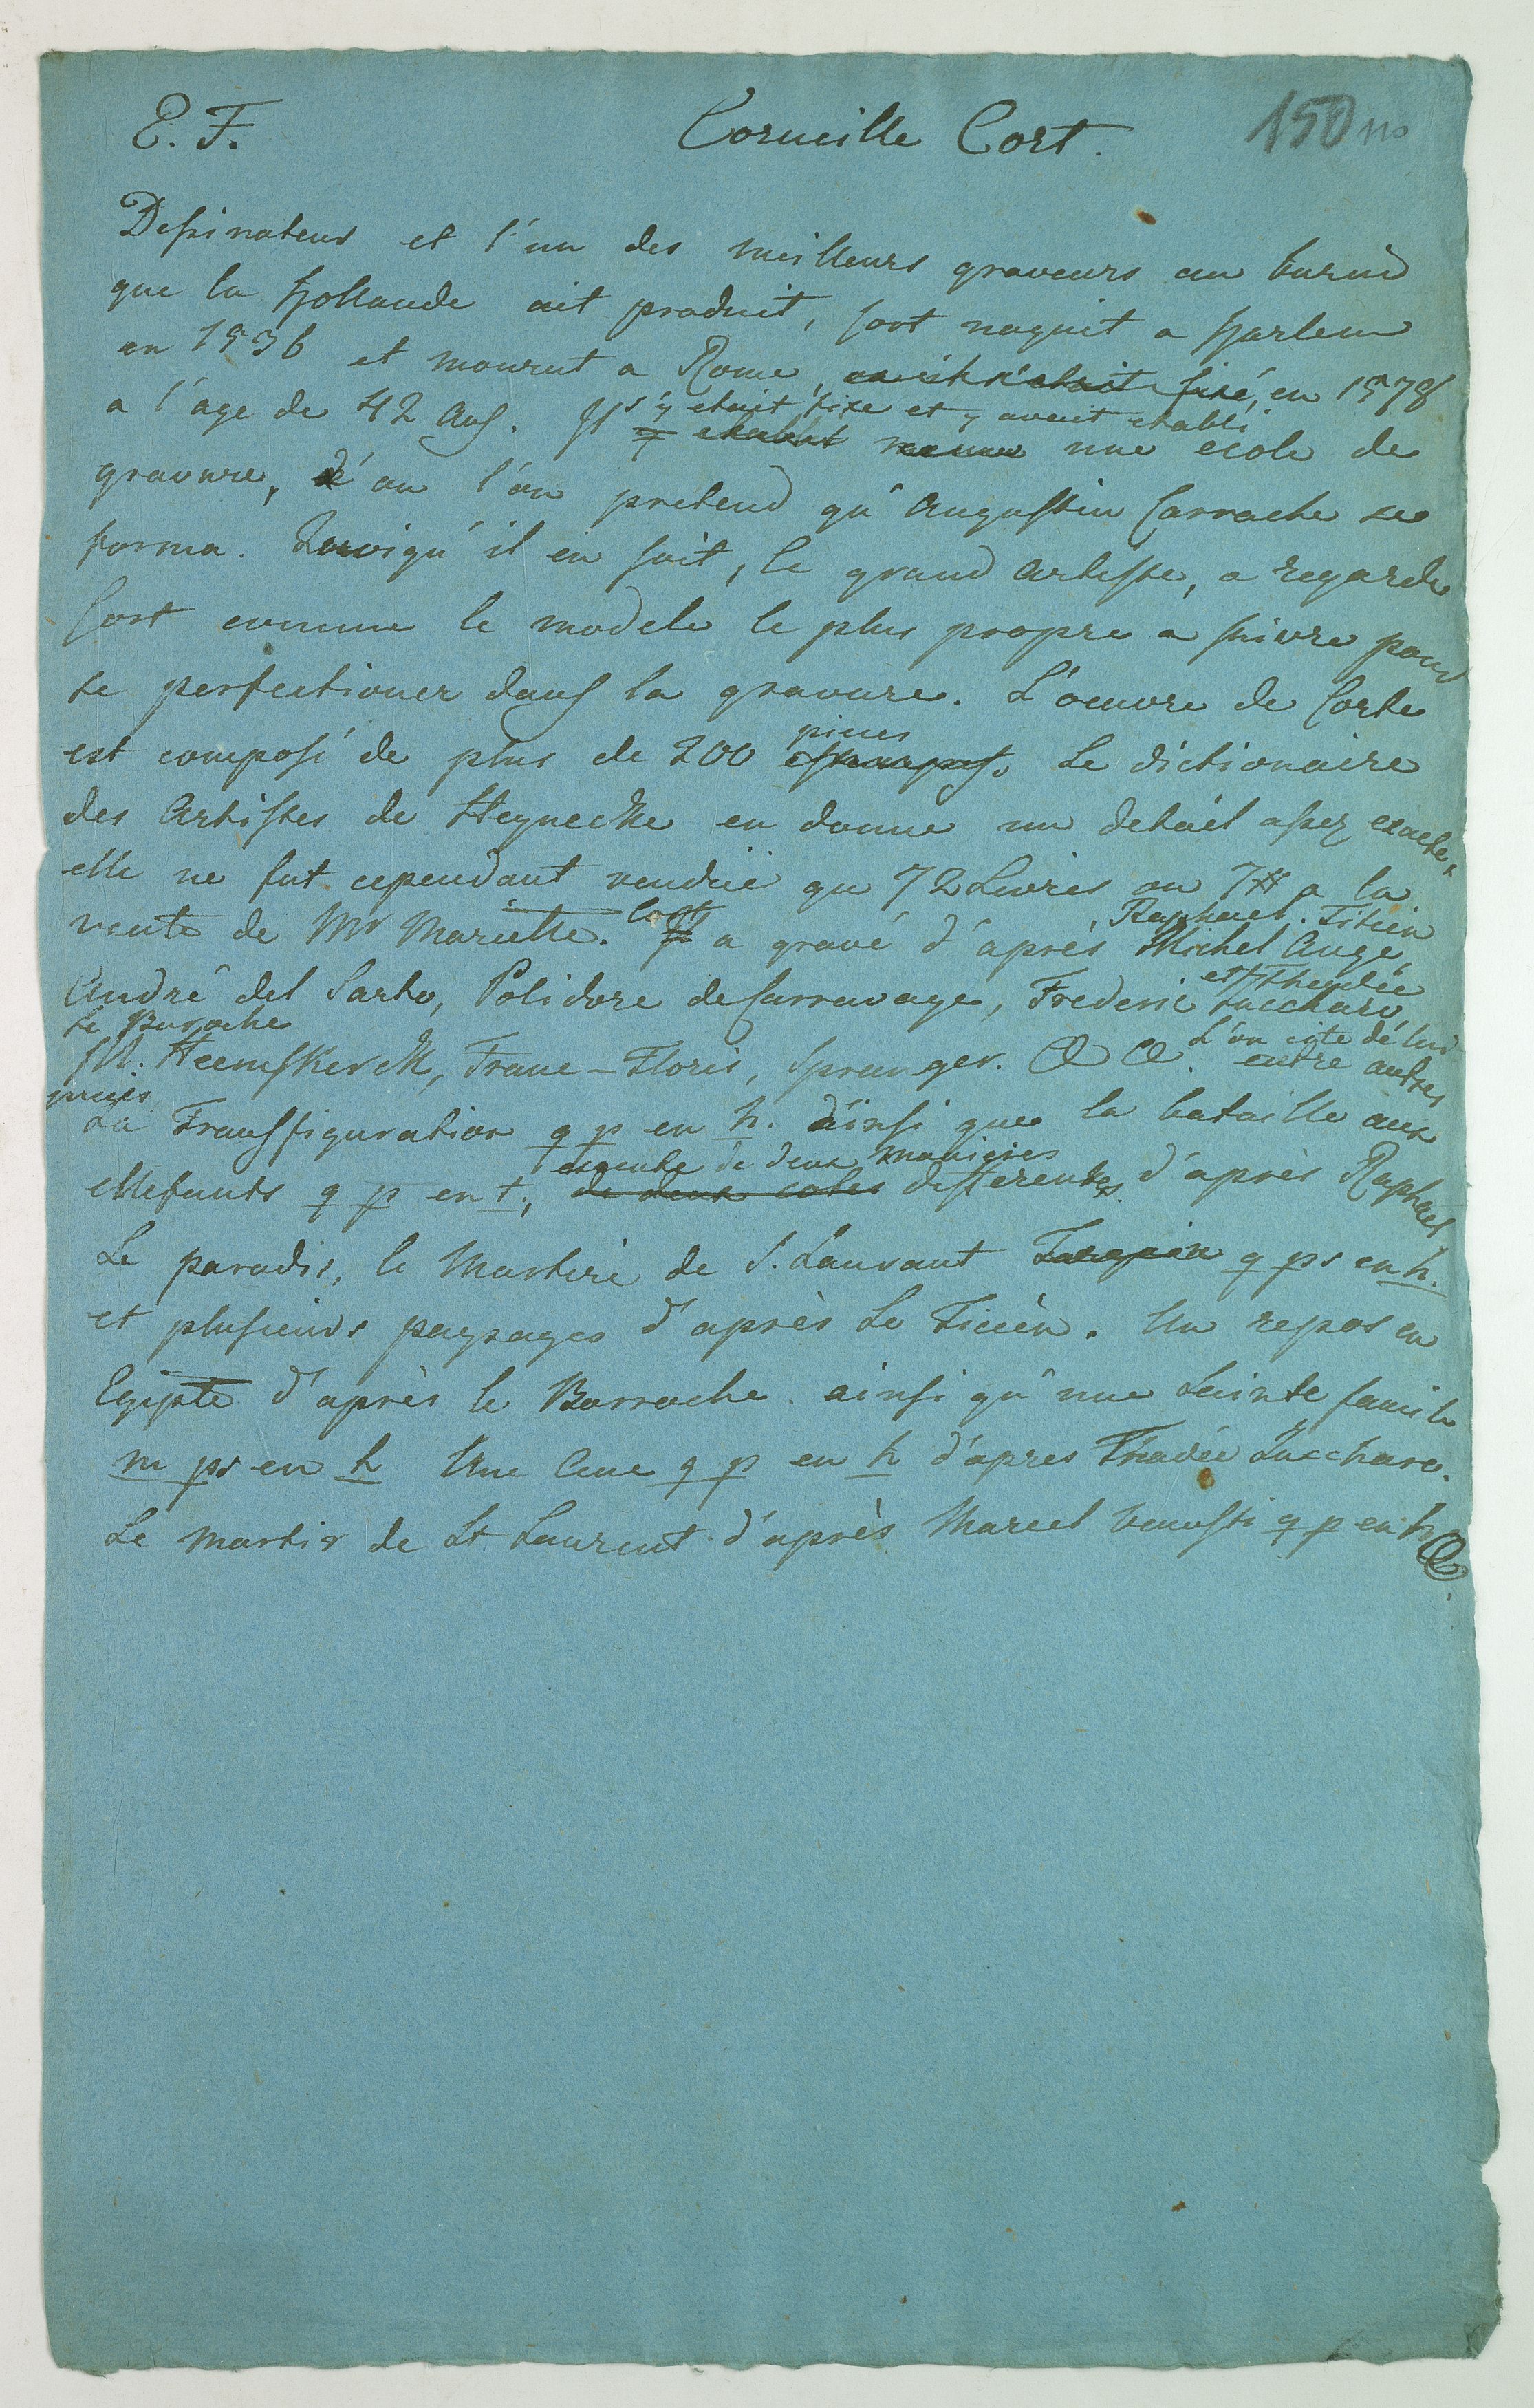 E. F. Corneille Cort. 150 110
Dessinateur et l'un des meilleurs graveurs au burin
que la Hollande ait produit, Cort naquit a Harlem
en 1536 et mourut a Rome, ou il s'etait fixé, en 1578
a l'age de 42 Ans. Il s'y etait fixe et y avait etabli
y etablit une ecole de
gravure, d'ou l'on pretend qu'Augustin Carrache se
forma. Quoiqu'il en soit, le grand Artiste, a regardé
Cort comme le modele le plus propre a suivre pour
se perfectioner dans la gravure. L'oeuvre de Corte
pieces
est composé de plus de 200 estampes. Le dictionaire
des Artistes de Heynecke en donne un detail assez exacte,
elle ne fut cependant vendue qu 72 Livres ou 7# a la
Cort Raphael. Titien
vente de Mr Mariette. Il a gravé d'après Michel Ange,
et Thadée
André del Sarto, Polidore de Carravage, Frederic Zucchare,
le Baroche L'on cite de lui
M. Heemskerck, Franc-Floris, Spranger. & &. entre autres
pieces
sa Transfiguration g p en h. ainsi que la bataille aux
executé de deux manieres
ellefants g p en t, de deux cotes differentes. d'après Raphael
Le paradis, le Martire de S. Laurant g ps en h.
et plusieurs paysages d'après Le Ticièn. Un repos en
Egipte d'après le Barroche. ainsi qu'une Sainte famile
m ps en h Une Cene g p en h d'apres Thadée Zucchare.
Le martir de St. Laurent d'après Marcel Venusti g p en h &.